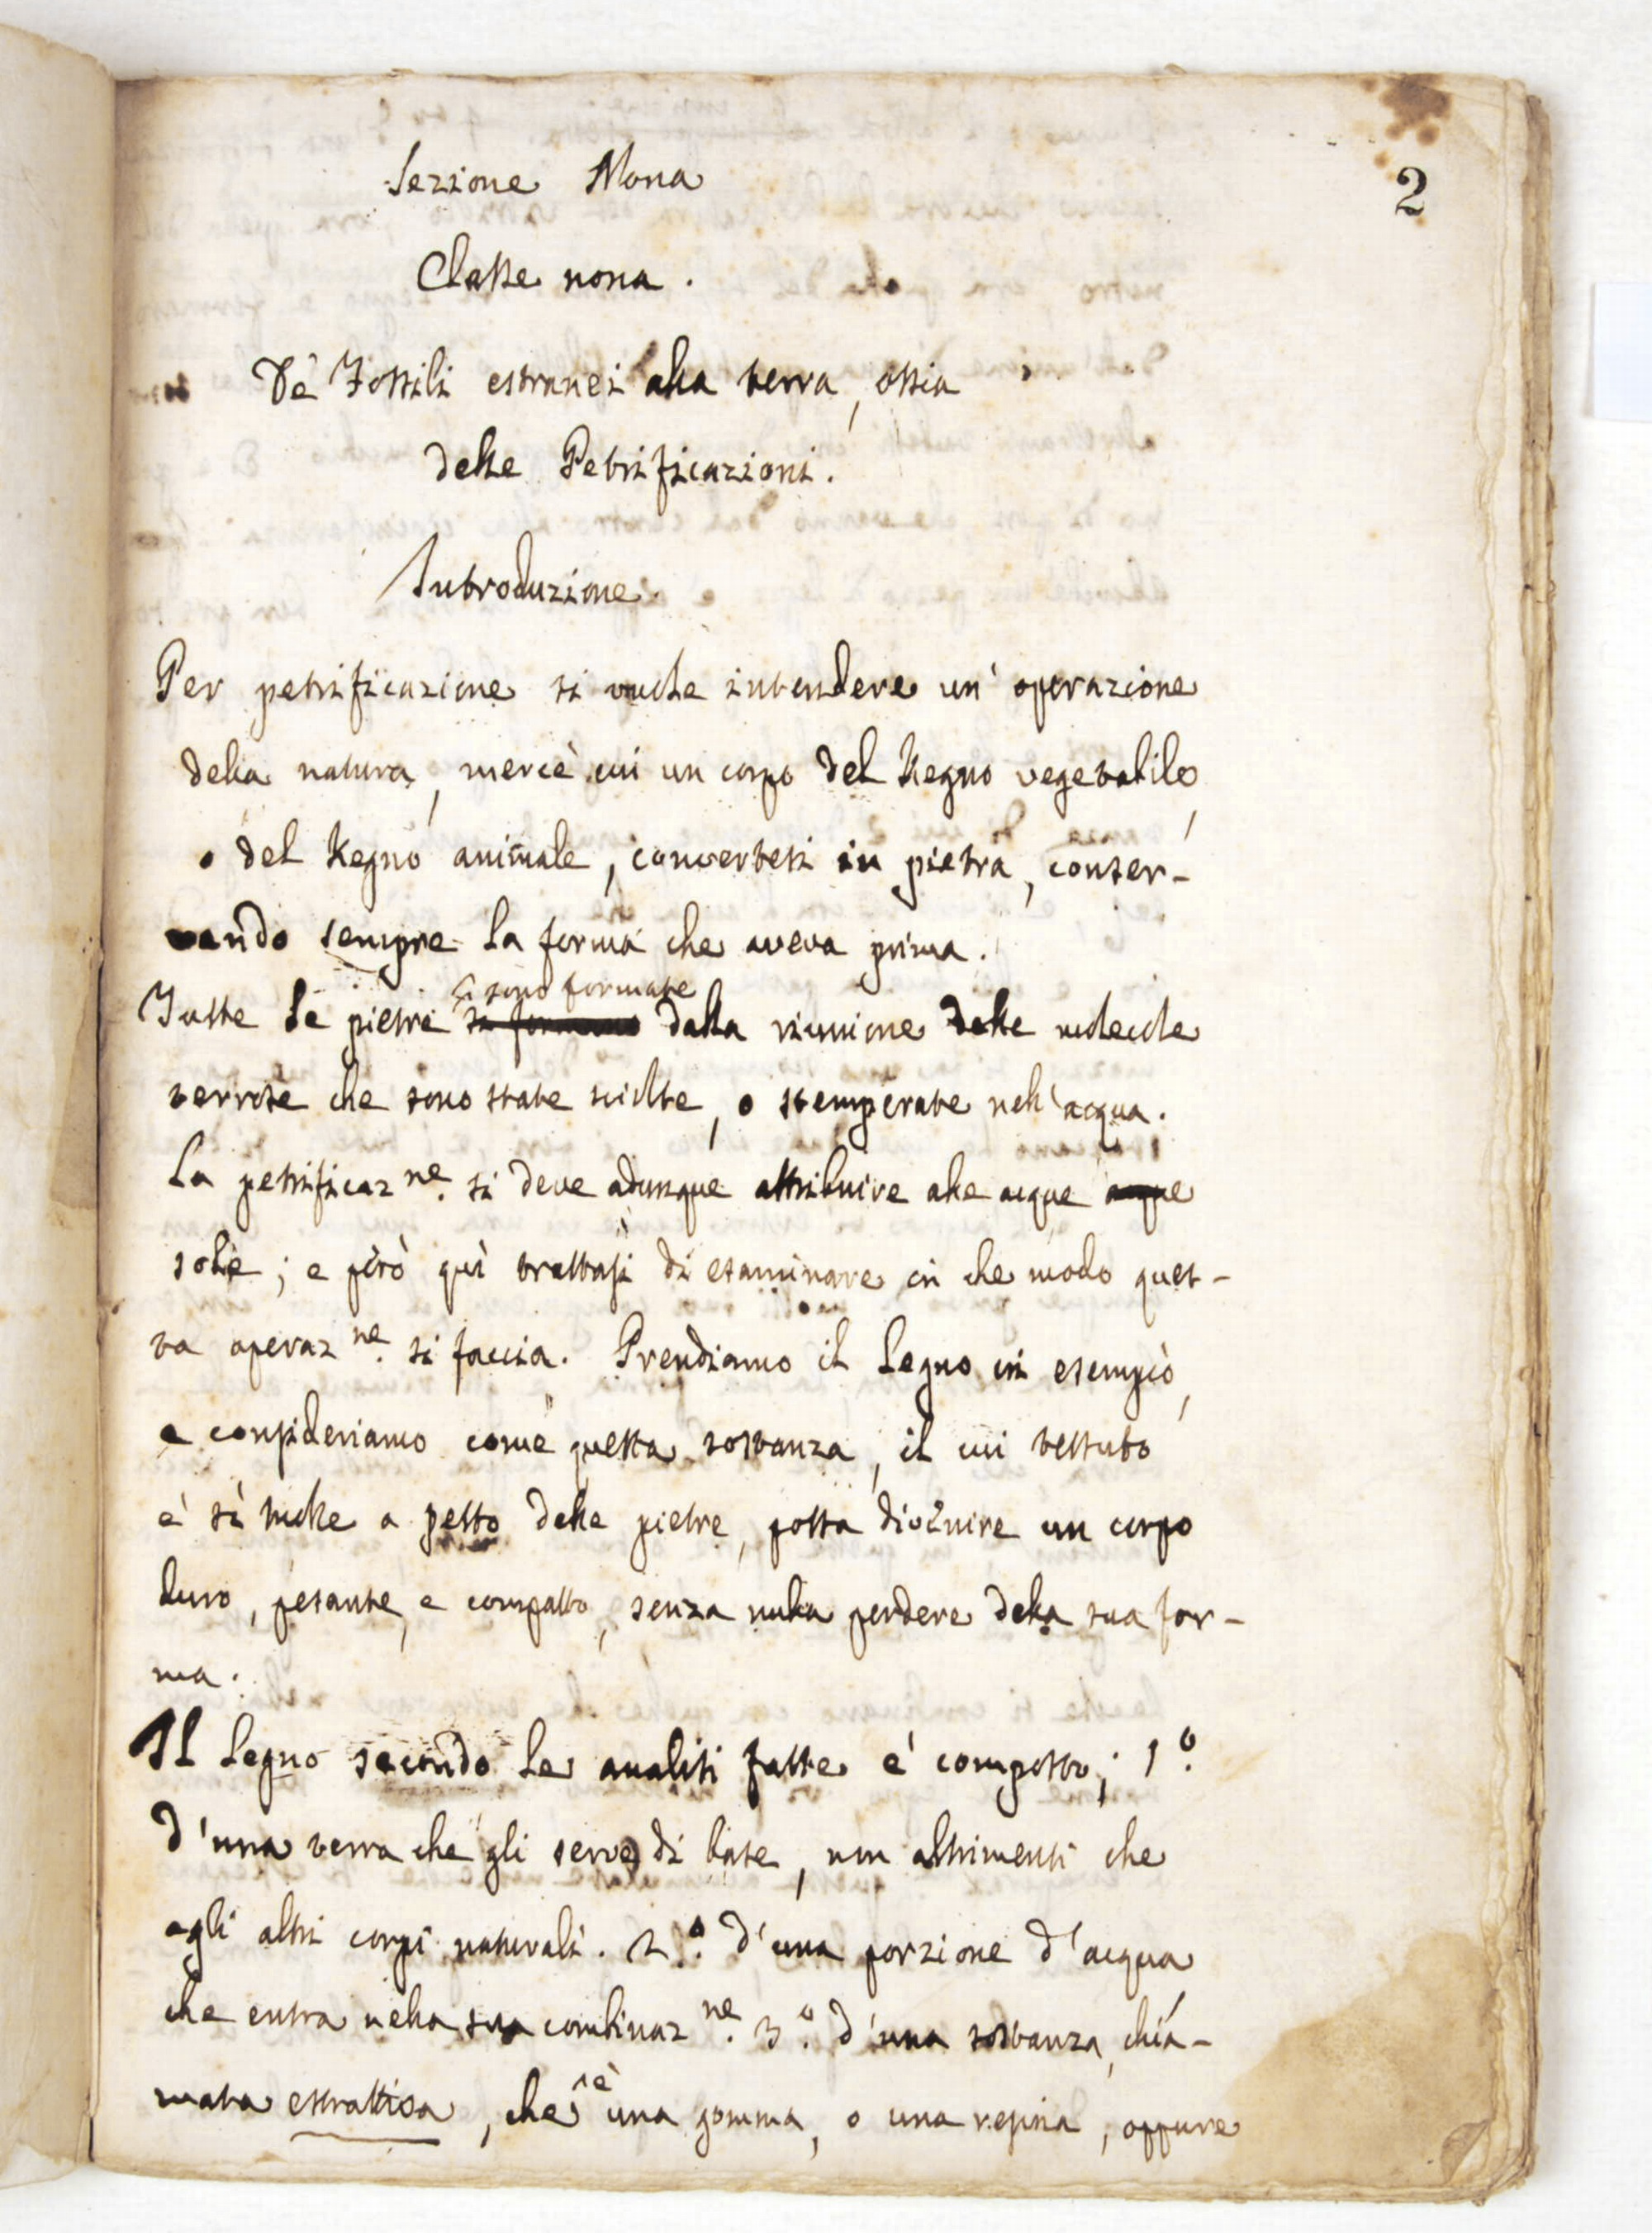 2
Sezione Nona
Classe nona.
De' Fossili estranei alla terra, ossia
delle Petrificazioni.
Introduzione.
Per petrificazione si vuole intendere un' operazione
della natura, mercè cui un corpo del Regno vegetabile,
o del Regno animale, convertesi in pietra, conser-
vando sempre la forma che aveva prima.
si sono formate
Tutte le pietre si formano dalla riunione delle molecole
terrose che sono state sciolte, o stemperate nell'acqua.
La petrificaz.ne si deve adunque attribuire alle acque acque
sole; e però quì trattasi di esaminare in che modo ques-
ta operaz.ne si faccia. Prendiamo il Legno in esempio,
e consideriamo come questa sostanza, il cui tessuto
è sì molle a petto delle pietre, possa divenire un corpo
duro, pesante, e compatto, senza nulla perdere della sua for-
ma.
Il Legno secondo le analisi fatte è composto; 1.o
d'una terra che gli serve di base, non altrimenti che
agli altri corpi naturali. 2.o d'una porzione d'acqua
che entra nella sua combinaz.ne 3.o d'una sostanza, chia-
mata estrattiva, che è una gomma, o una resina, oppure